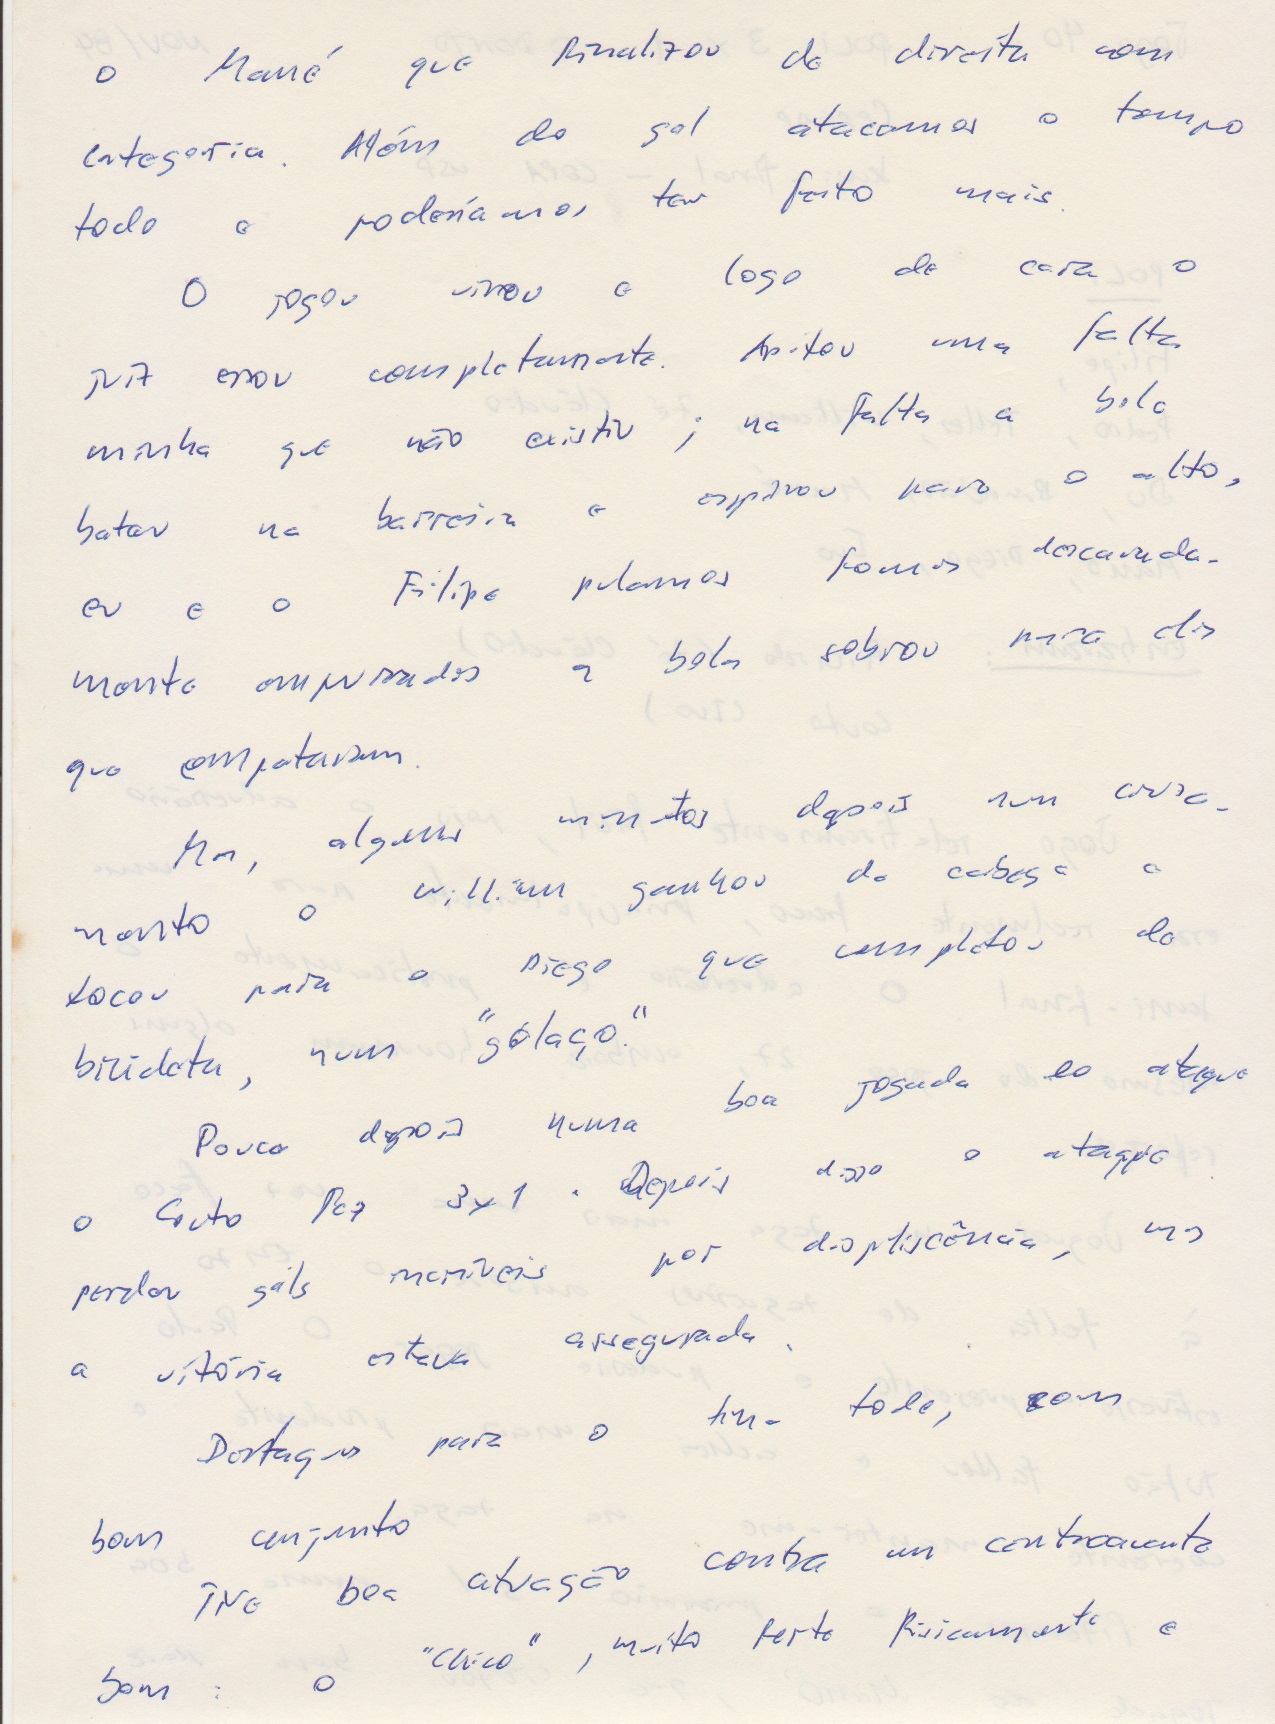 o Mané que finalizou de direita com
categoria. Além do gol atacamos o tempo
todo e poderíamos ter feito mais.
O jogou virou e logo de cara o
juiz errou completamente. Apitou uma falta
minha que não existiu; na falta a bola
bateu na barreira e espirrou para o alto,
eu e o Filipe pulamos fomos descarada-
mente empurrados a bola sobrou para eles
que empataram.
Mas, alguns minutos depois num cruza-
mento o William ganhou de cabeça e
tocou para o Diego que completou de
bicicleta, num "golaço".
Pouco depois numa boa jogada do ataque
o Couto fez 3x1. Depois disso o ataque
perdeu gols incríveis por displiscência, mas
a vitória estava assegurada.
Destaques para o time todo, com
bom conjunto
Tive boa atuação contra um centroavante
bom: o "Chico", muito forte fisicamente e